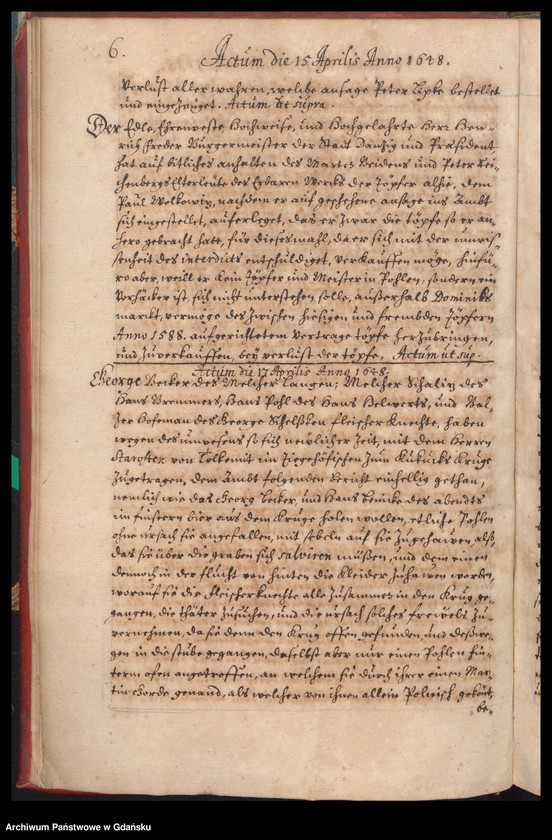 6.
Actum die 15 Aprilis Anno 1648.
Verlust aller wahren, welche ansage Peter Lipke bestellet
und eingezeuget. Actum ut supra.
Der Edle, Ehrenveste Hochweise, und Hochgelahrte Herr Hen-
rich Freder Burgermeister der Stadt Dantzig und Præsident
hat auf bitliches anhalten des Marten Weidens und Peter Rei-
chenbergs Elterleute des Erbaren Wercks der Töpfer alhie, dem
Paul Wolkowitz, nachdem er auf geschehene ansage ins Ambt
sich eingestellet, auferleget, daß er zwar die töpfe so er an-
hero gebracht hatt, für dieses mahl, da er sich mit der unwis-
senheit des interdicts entschuldiget, verkauffen möge, hinfü-
ro aber, weill er kein Töpfer und Meister in Pohlen, sondern ein
Vorhäcker ist, sich nicht unterstehen solle, außerhalb Dominiks
marckt, vermöge des zwischen hiesigen und frembden Töpfern
Anno 1588. aufgerichtetem Vertrage töpfe herzubringen,
und zuverkauffen, bey verlust der töpfe. Actum ut sup.
Actum die 17 Aprilis Anno 1648.
George Becker des Melcher Langen; Melcher Schalin des
Hans Bremmers, Hans Pohl des Hans Helwerts, und Bal-
zer Hofeman des George fleischer Knechte, haben
wegen des unwesens so sich neulicher Zeit, mit dem Herren
Starosten von Tolkemit im Ziegehöfischen Kruge
Zugetragen, dem Ambt folgenden bericht einhellig gethan,
nemlich wie das Georg Becker, und Hans des abendts
im finstern bier aus dem Kruge holen wollen, etliche Pohlen
ohne ursach sie angefallen, mit sebeln auf sie zugehawen also,
das sie über die graben sich salviren müßen, und dem einen
dennoch in der flucht von hinten die Kleider zuhawen worden,
worauf sie die Fleischerknechte alle zusammen in den Krug ge-
gangen, die thäter zusuchen, und die ursach solches frewels zu-
vernehmen, da sie denn den Krug offen gefunden, und deßwe-
gen in die stube gegangen, daselbst aber nur einen Pohlen hin-
term ofen angetroffen, an welchem sie durch ihrer einen Mar-
tin genand, als welcher von ihnen allein Polnisch gekönt,
be-
Archiwum Państwowe w Gdańsku